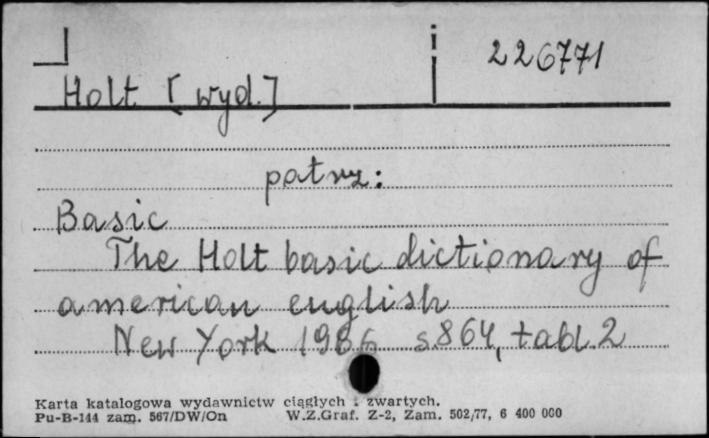 226771
Holt [wyd.]
patrz:
Basic
The Holt basic dictionary of
american english
New York 1986 s 864, tabl. 2
Karta katalogowa wydawnictw ciągłych i zwartych.
Pu-B-144 zam. 567/DW/On W.Z.Graf. Z-2, Zam. 502/77, 6 400 000